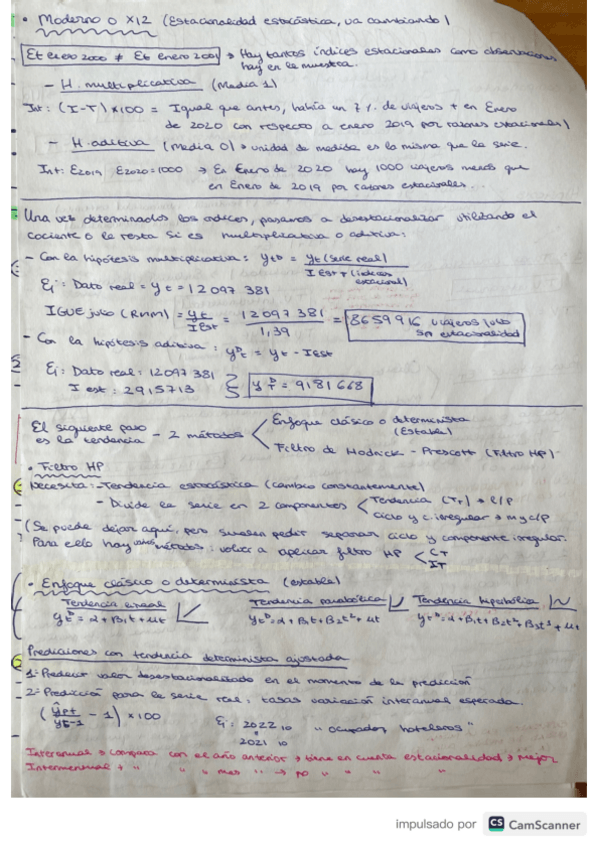 • Moderno o X12 (Estacionalidad estocástica, va cambiando)
Et enero 2000 ≠ Et enero 2001 → Hay tantos índices estacionales como observaciones
hay en la muestra.
- H. multiplicativa (Media 1)
Int: (I-T) x100 = Igual que antes, había un 7% de viajeros + en Enero
de 2020 con respecto a enero 2019 por razones estacionales)
- H. aditiva (Media 0) → unidad de medida es la misma que la serie.
Int: E2019 E2020=1000 → En Enero de 2020 hay 1000 viajeros menos que
en Enero de 2019 por factores estacionales..
Una vez determinados los índices, pasamos a desestacionalizar utilizando el
cociente o la resta si es multiplicativa o aditiva:
- Con la hipótesis multiplicativa: ytD = yt (serie real) / I Est t (índices estacional)
Ej: Dato real = yt = 12097 381
IGUE julio (RMM) = yt / IEst = 12097 381 / 1,39 = 8659916 viajeros julio sin estacionalidad
- Con la hipótesis aditiva: ytD = yt - IEst
Ej: Dato real: 12097 381
I est: 2915713 } ytD = 9181 668
El siguiente paso
es la tendencia - 2 métodos < Enfoque clásico o determinista
(Estable)
Filtro de Hodrick - Prescott (Filtro HP)
• Filtro HP
Necesita: - Tendencia estocástica (cambia constantemente)
- Divide la serie en 2 componentes < Tendencia (Tt) → l/p
Ciclo y c. irregular → m y c/p
(Se puede dejar aquí, pero suelen pedir separar ciclo y componente irregular.
Para ello hay varios métodos: volver a aplicar filtro HP < CT
IT
• Enfoque clásico o determinista (estable)
Tendencia lineal Tendencia parabólica Tendencia hiperbólica
ytD = α + β1t + μt ytD = α + β1t + β2t² + μt ytD = α + β1t + β2t² + β3t³ + μt
Predicciones con tendencia determinista ajustada
1- Predecir valor desestacionalizado en el momento de la predicción
2- Predicción para la serie real: tasas variación interanual esperada.
(ŷpt / yt-1 - 1) x100 Ej: 2022 10 " ocupados hoteleros"
2021 10
Interanual → compara con el año anterior → tiene en cuenta estacionalidad → mejor
Intermensual → " " " " mes " → no " " " "
impulsado por CS CamScanner